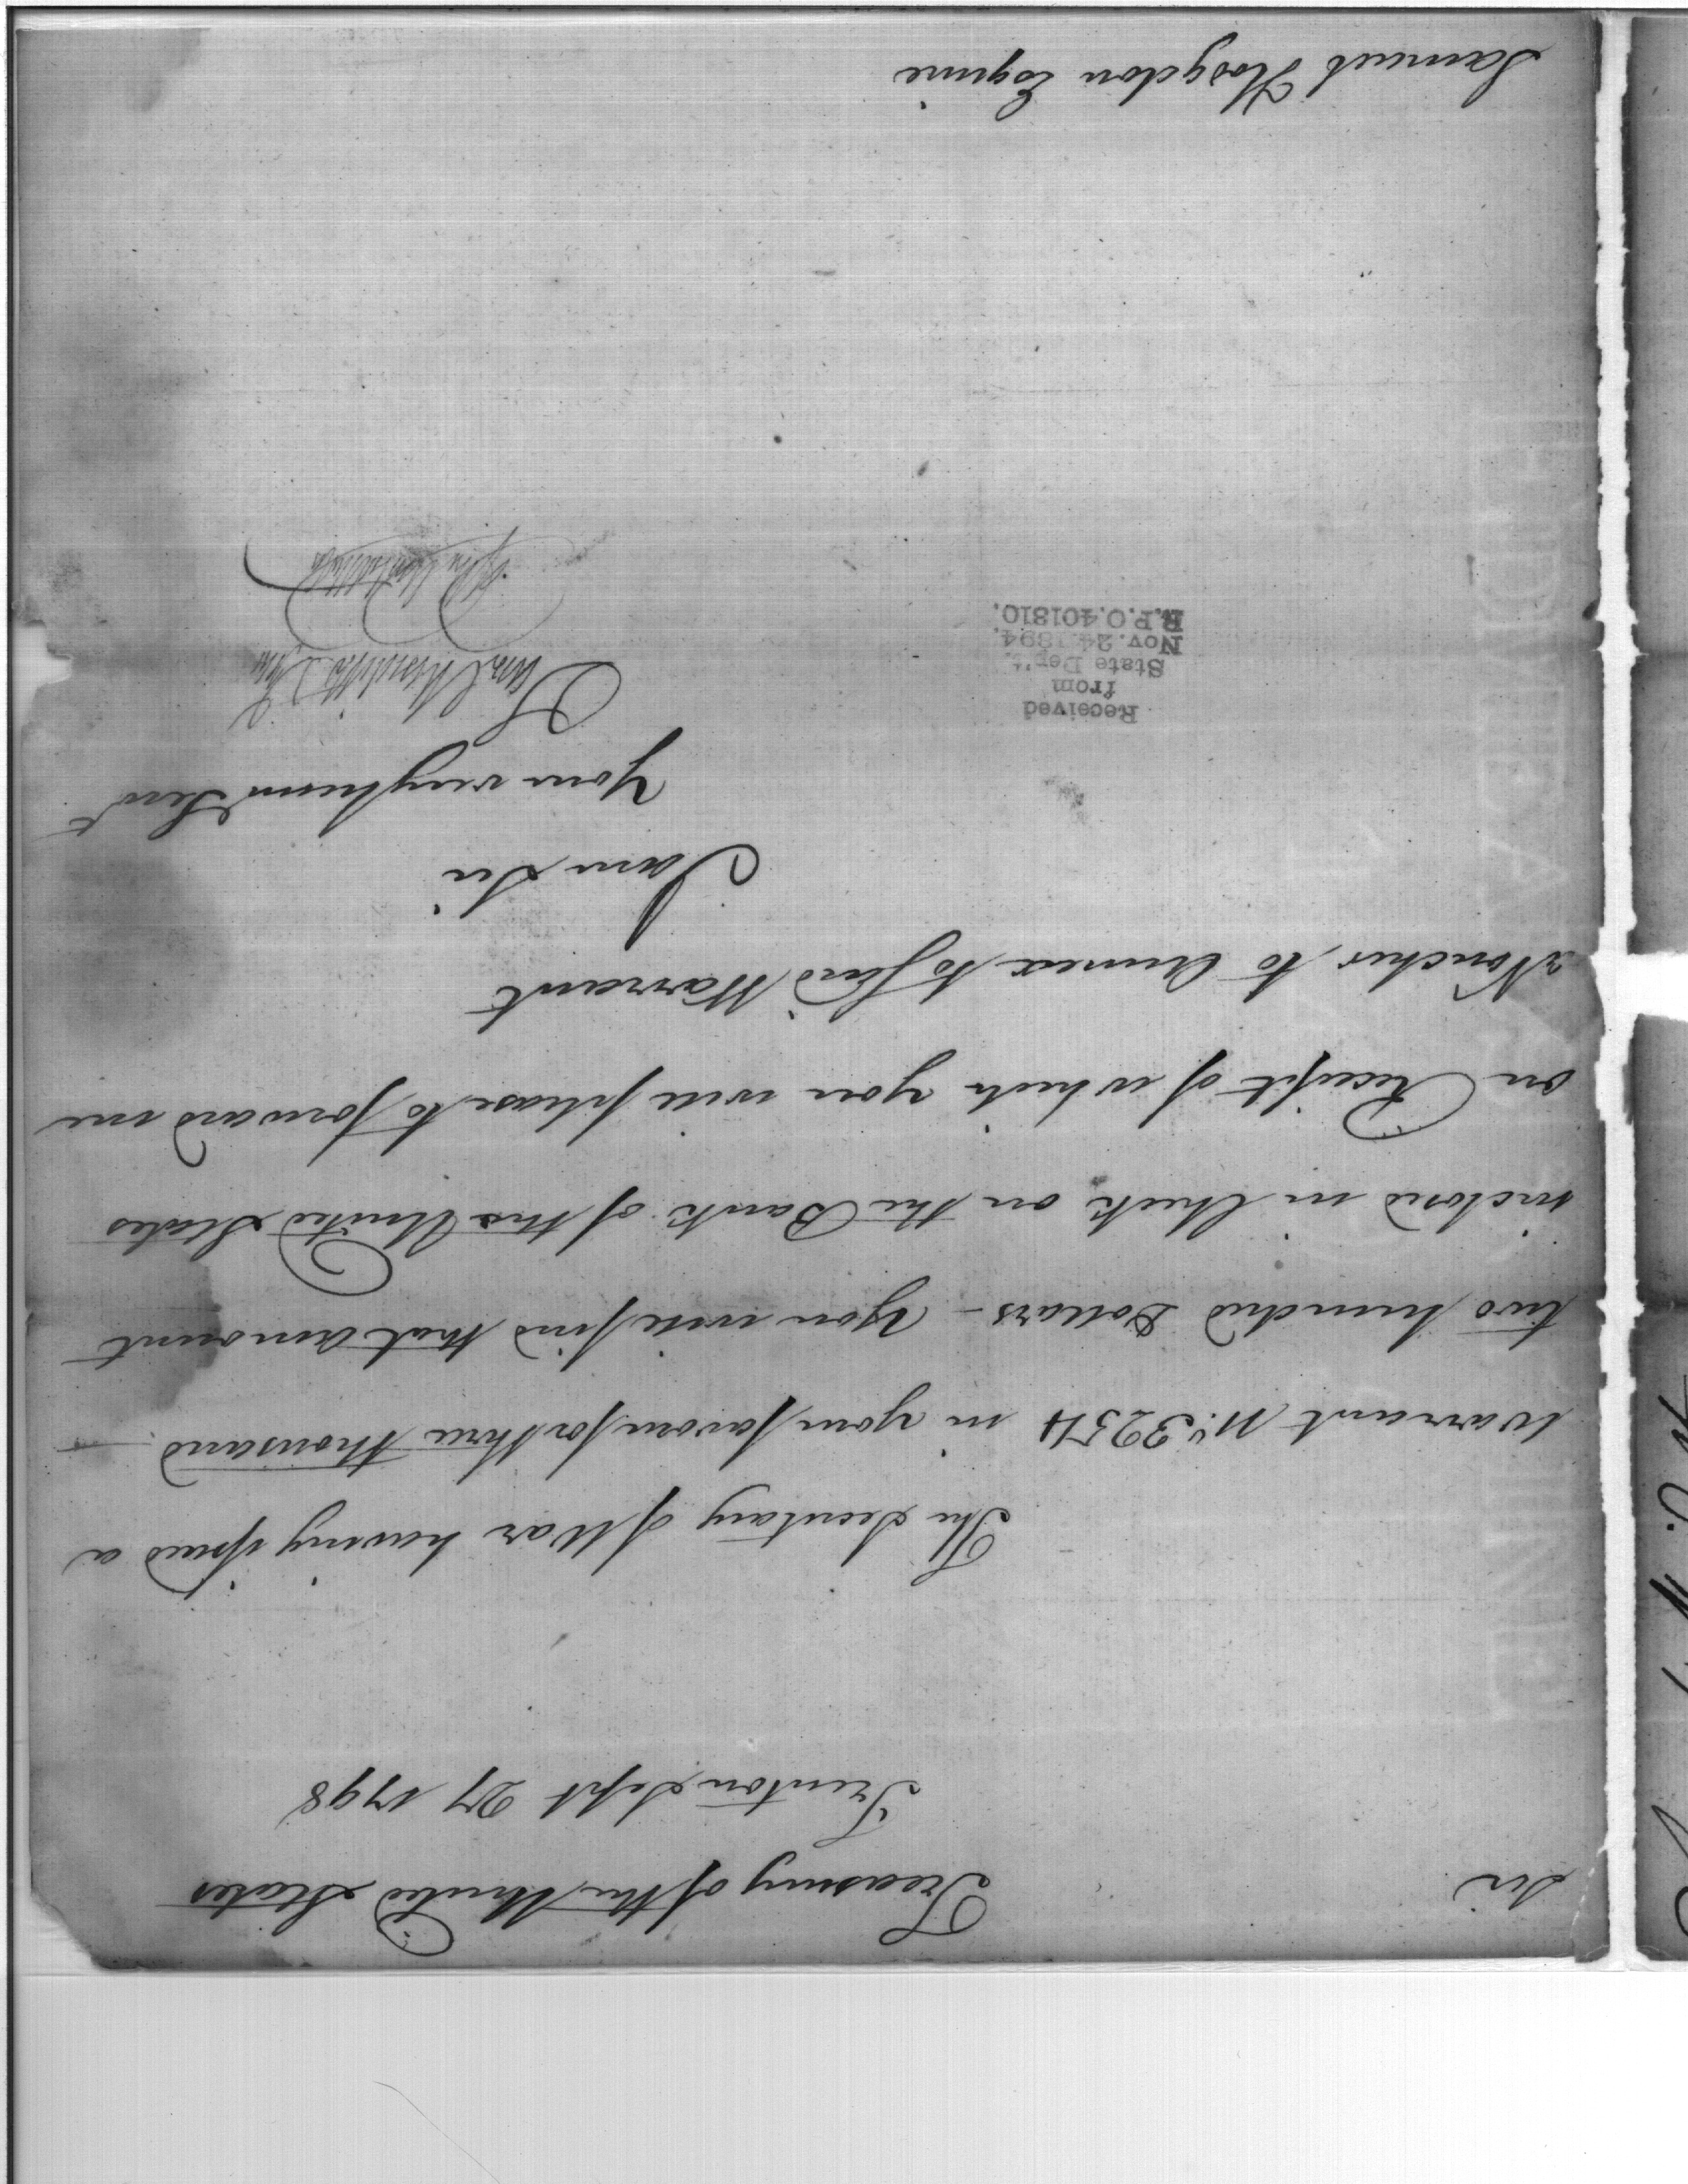 Sir
Treasury of the United States
Trenton Sept 27 1798
The Secretary of War having issued a
Warrant No. 3254 in your favour for three thousand
two hundred Dollars - You will find that amount
inclosed in Check on the Bank of the United States
on Receipt of which you will please to forward me
Voucher to Annex to said Warrant
I am Sir
Your very hum Servt
Received
from
State Dep't.
Nov. 24, 1894.
R.P.O. 401810.
Samuel Hodgdon Esquire